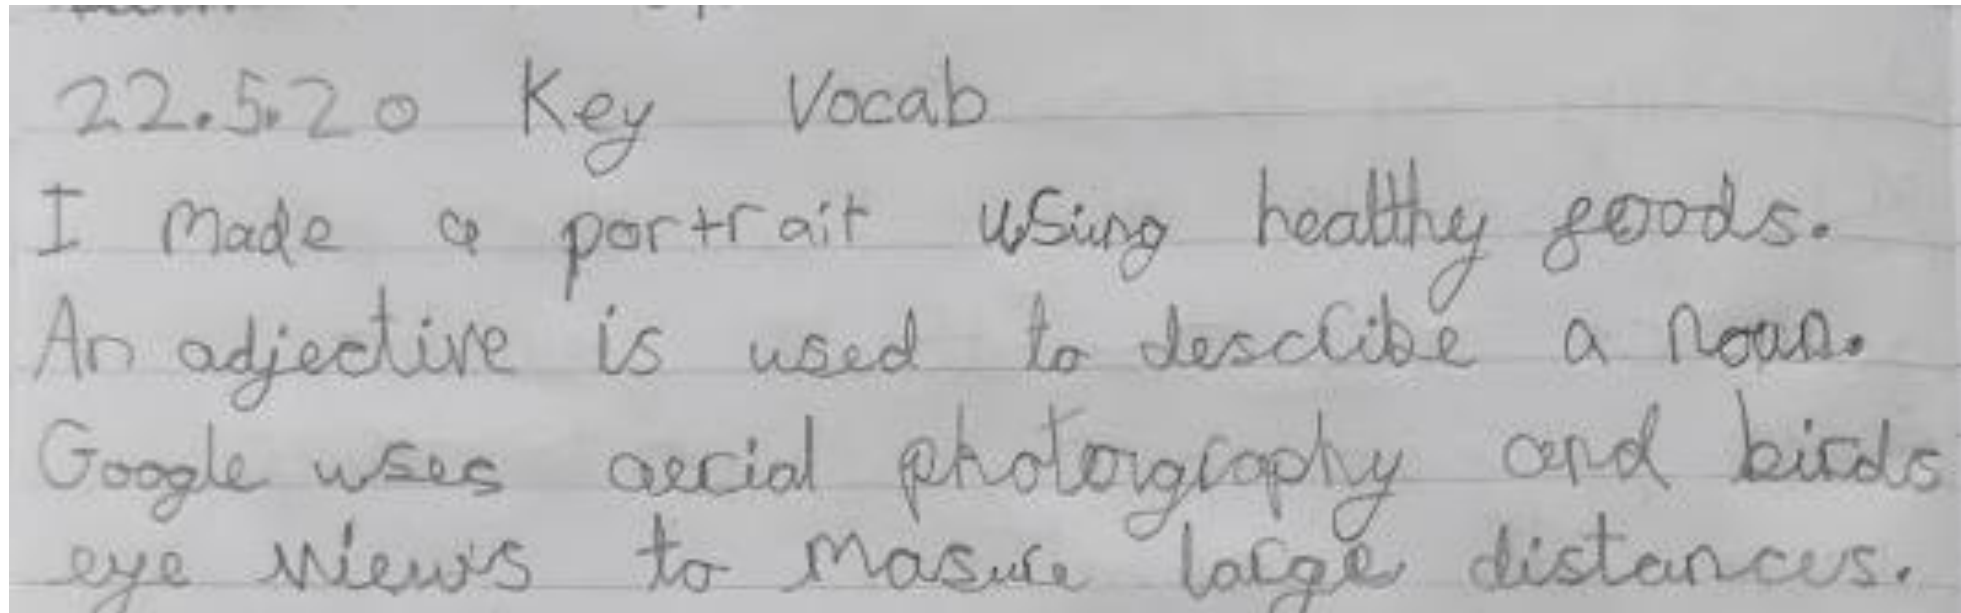 22.5.20 Key Vocab
I made a portrait using healthy foods.
An adjective is used to describe a noun.
Google uses aerial photorgraphy and birds
eye views to masure large distances.